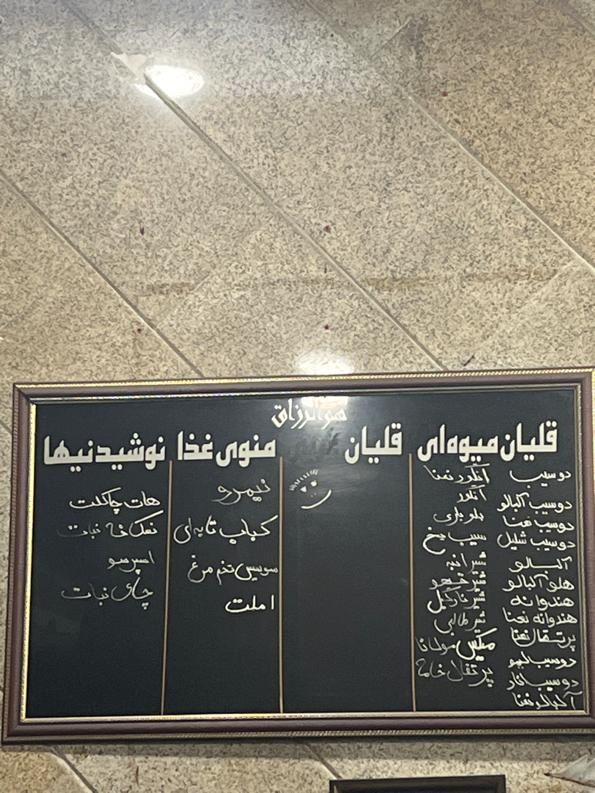 هوالرزاق
قلیان میوه‌ای
دوسیب
دوسیب آلبالو
دوسیب نعنا
دوسیب شلیل
آلبالو
هلو آلبالو
هندوانه
هندوانه نعنا
پرتقال نعنا
دوسیب لیمو
دوسیب انار
آلبالو نعنا
انگور نعنا
انگور
بلوبری
سیب یخ
شیر انبه
شیر قهوه
شیر نارگیل
شیر طالبی
میکس مولانا
پرتقال خامه
قلیان
منوی غذا
نیمرو
کباب تابه‌ای
سوسیس تخم مرغ
املت
نوشیدنیها
هات چاکلت
نسکافه نبات
اسپرسو
چای نبات